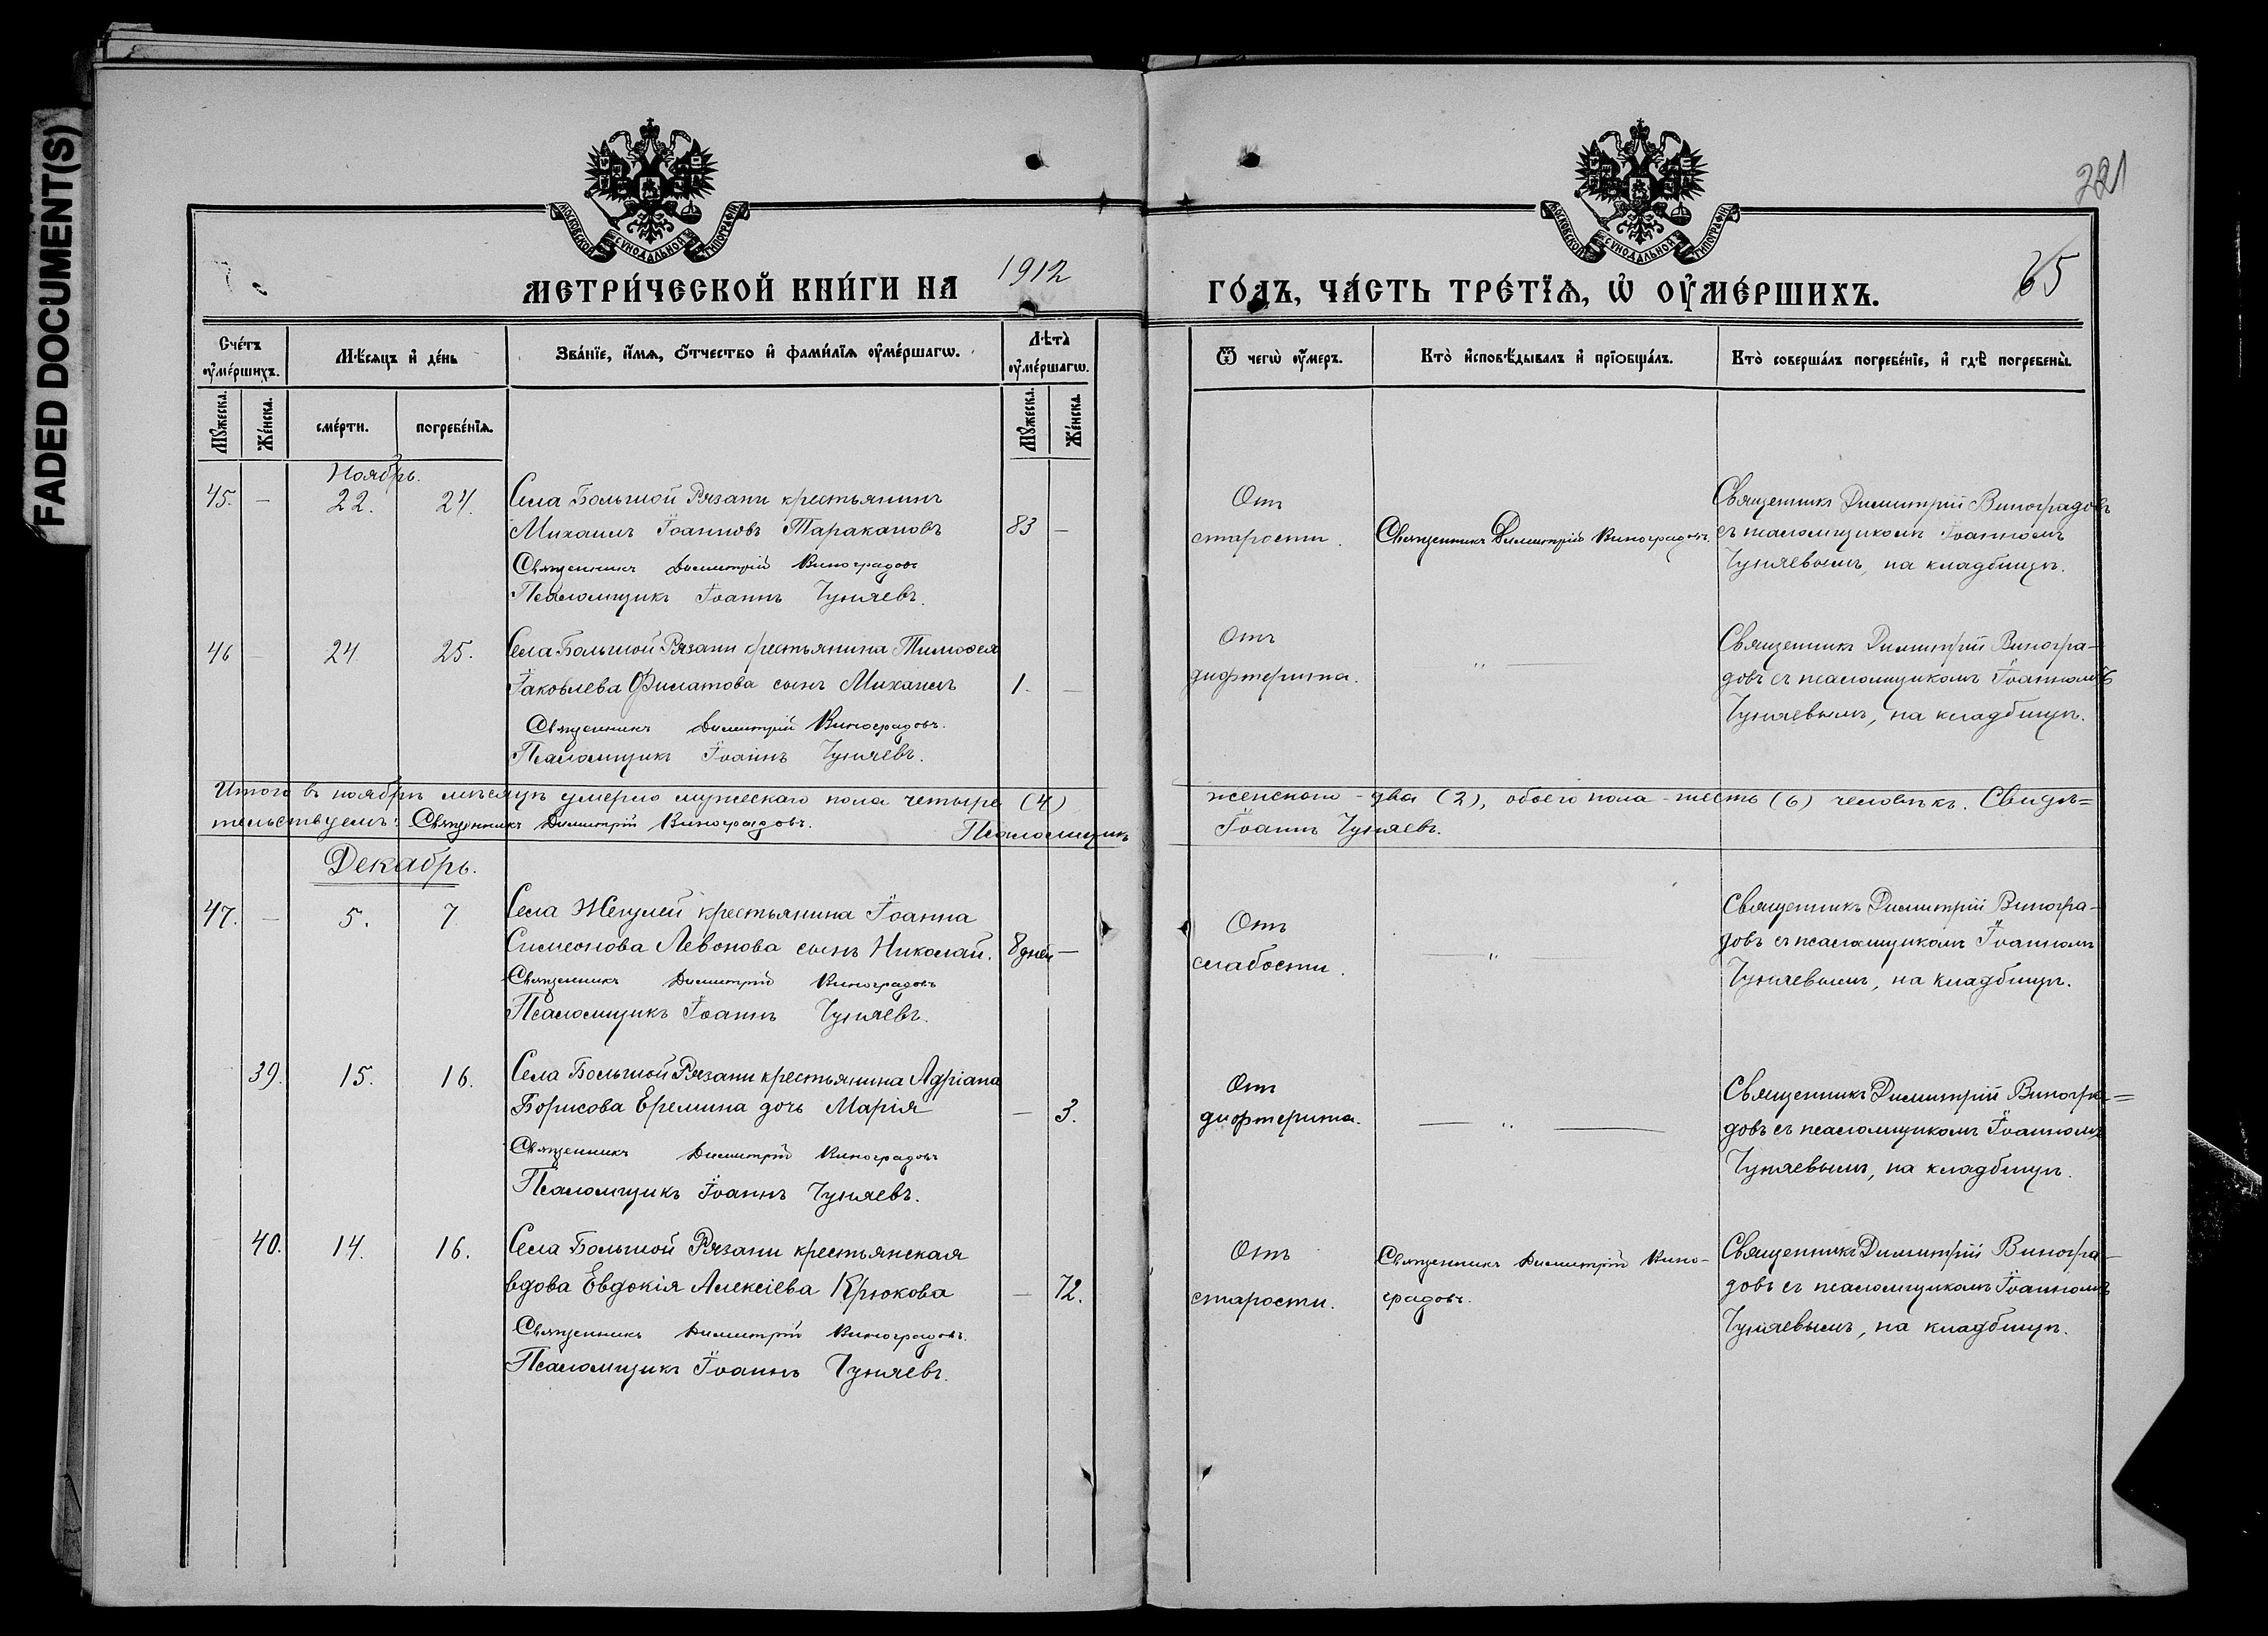 FADED DOCUMENT(S)
МОСКОВСКОЙ СѴНОДАЛЬНОЙ ТИПОГРАФІИ
МОСКОВСКОЙ СѴНОДАЛЬНОЙ ТИПОГРАФІИ
221
65
МЕТРИ́ЧЕСКОЙ КНИ́ГИ НА 1912 ГО́ДЪ, ЧА́СТЬ ТРЕ́ТЇѦ, Ѡ҆ ОУ҆МЕ́РШИХЪ.
Сче́тъ оу҆ме́ршихъ.
Мѣ́сяцъ и҆ де́нь
Зва́нїе, и҆́мѧ, ѻ҆́тчество и҆ фами́лїѧ оу҆ме́ршагѡ.
Лѣ́та̀ оу҆ме́ршагѡ.
Ѿ чегѡ̀ оу҆́меръ.
Кто̀ и҆сповѣ́дывалъ и҆ прїѻбща́лъ.
Кто̀ соверша́лъ погребе́нїе, и҆ гдѣ̀ погребены̀.
Мꙋ́жеска. Же́нска. сме́рти. погребе́нїѧ. Мꙋ́жеска. Же́нска.
Ноябрь.
45. — 22. 24. Села Большой Рязани крестьянинъ
Михаилъ Іоанновъ Таракановъ 83 —
Священникъ Димитрій Виноградовъ
Псаломщикъ Іоаннъ Чуняевъ.
Отъ
старости.
Священникъ Димитрій Виноградовъ.
Священникъ Димитрій Виноградовъ
съ псаломщикомъ Іоанномъ
Чуняевымъ, на кладбищѣ.
46 — 24 25. Села Большой Рязани крестьянина Тимоѳея
Іаковлева Филатова сынъ Михаилъ 1. —
Священникъ Димитрій Виноградовъ.
Псаломщикъ Іоаннъ Чуняевъ.
Отъ
дифтерита.
„ —
Священникъ Димитрій Виногра-
довъ съ псаломщикомъ Іоанномъ
Чуняевымъ, на кладбищѣ.
Итого въ ноябрѣ мѣсяцѣ умерло мужескаго пола четыре (4) женскаго - два (2), обоего пола - шесть (6) человѣкъ. Свидѣ=
тельствуемъ: Священникъ Димитрій Виноградовъ. Псаломщикъ Іоаннъ Чуняевъ.
Декабрь.
47. — 5. 7 Села Жегулей крестьянина Іоанна
Симеонова Левонова сынъ Николай. 8 дней —
Священникъ Димитрій Виноградовъ
Псаломщикъ Іоаннъ Чуняевъ.
Отъ
слабости.
— „ —
Священникъ Димитрій Виногра-
довъ съ псаломщикомъ Іоанномъ
Чуняевымъ, на кладбищѣ.
39. 15. 16. Села Большой Рязани крестьянина Адріана
Борисова Еремина дочь Марія — 3.
Священникъ Димитрій Виноградовъ
Псаломщикъ Іоаннъ Чуняевъ.
Отъ
дифтерита.
— „ —
Священникъ Димитрій Виногра=
довъ съ псаломщикомъ Іоанномъ
Чуняевымъ, на кладбищѣ.
— 40. 14. 16. Села Большой Рязани крестьянская
вдова Евдокія Алексіева Крюкова — 72.
Священникъ Димитрій Виноградовъ.
Псаломщикъ Іоаннъ Чуняевъ.
Отъ
старости.
Священникъ Димитрій Вино-
градовъ.
Священникъ Димитрій Виногра-
довъ съ псаломщикомъ Іоанномъ
Чуняевымъ, на кладбищѣ.